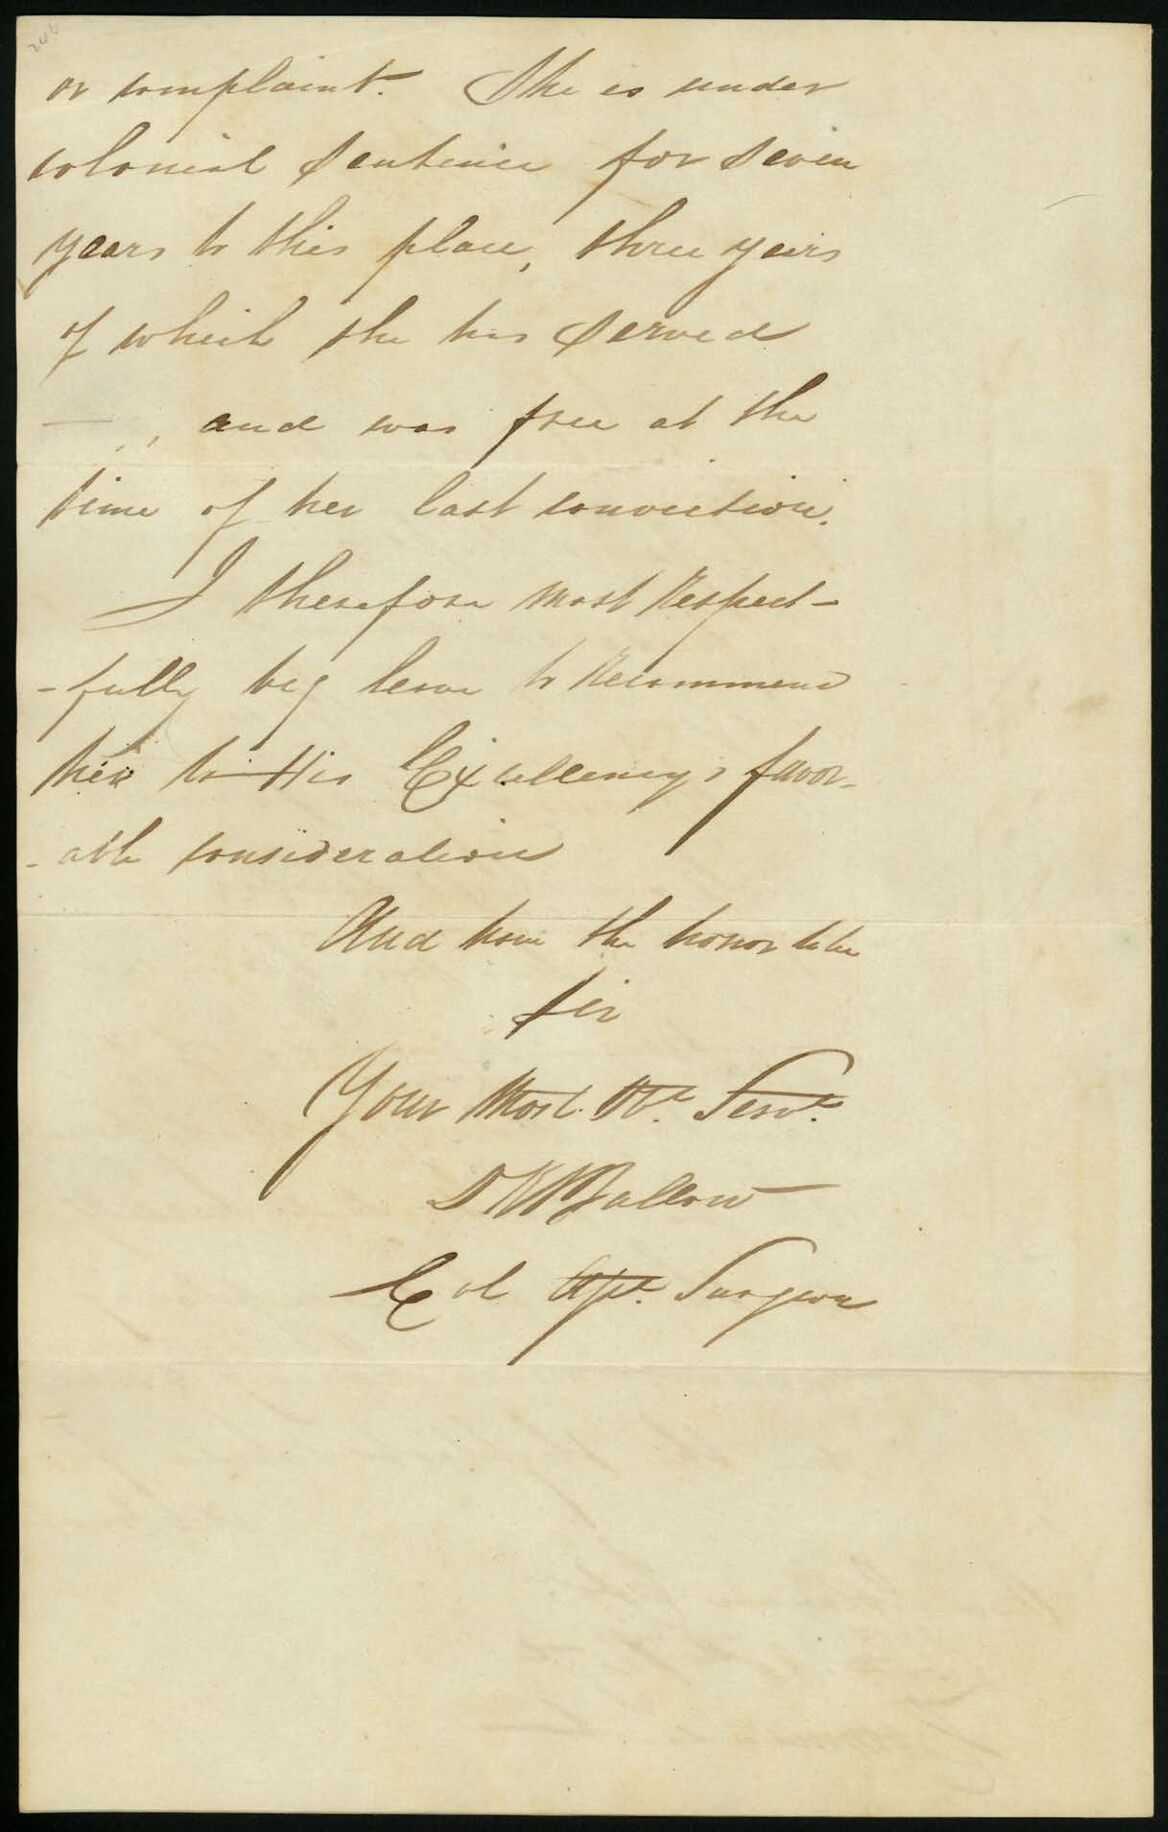 or complaint. She is under
colonial Sentence for Seven
years to this place, three years
of which she has Served
and was free at the
time of her last conviction.
I therefore most Respect-
-fully beg leave to Recommend
her to His Excellency's favor-
-able consideration
And have the honor to be
Sir
Your Most Obt. Servt.
D K Ballow
Col Asst. Surgeon